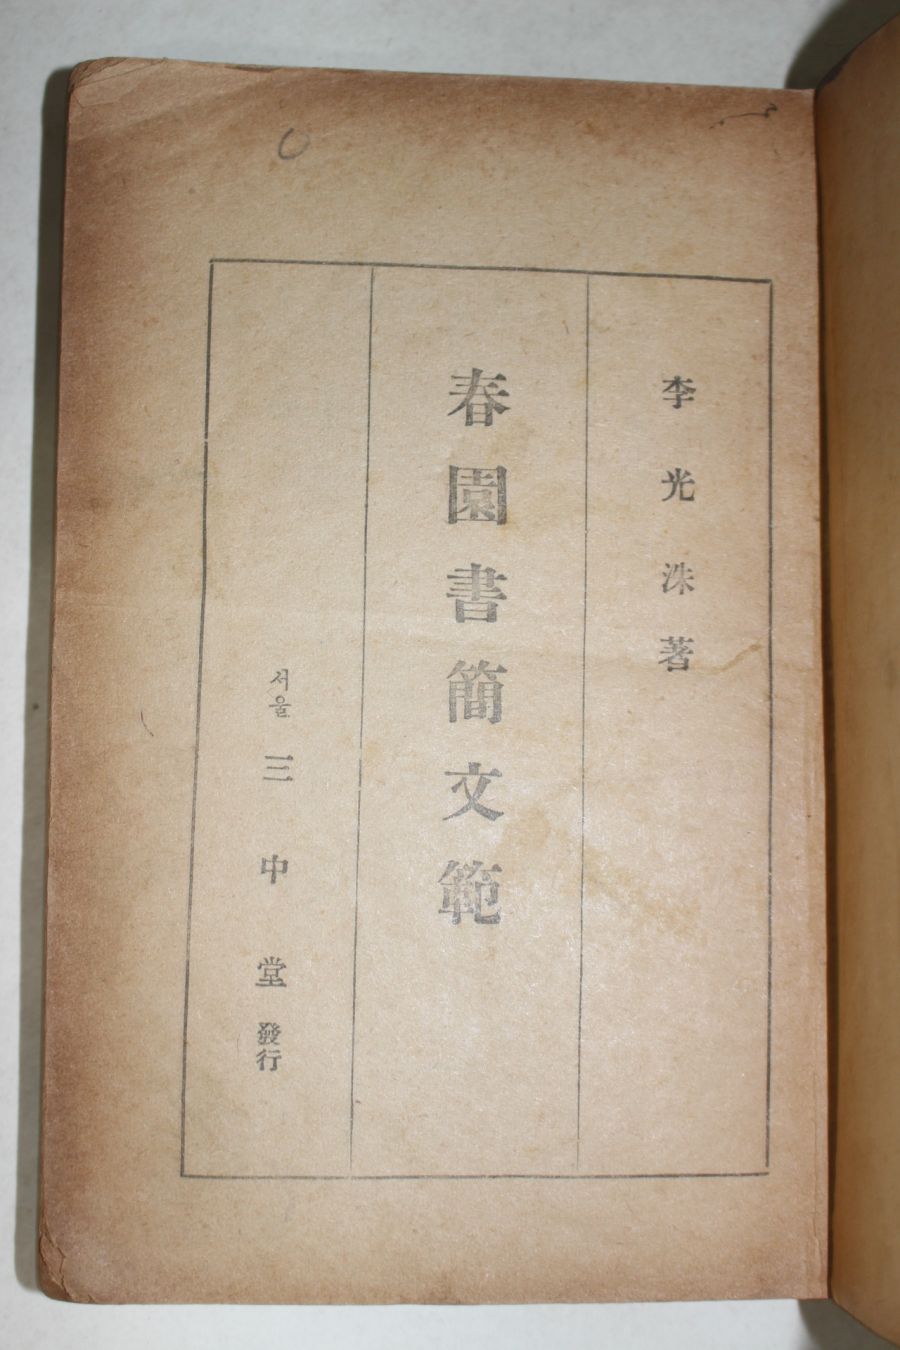 李光洙著
春園書簡文範
서울 三中堂發行